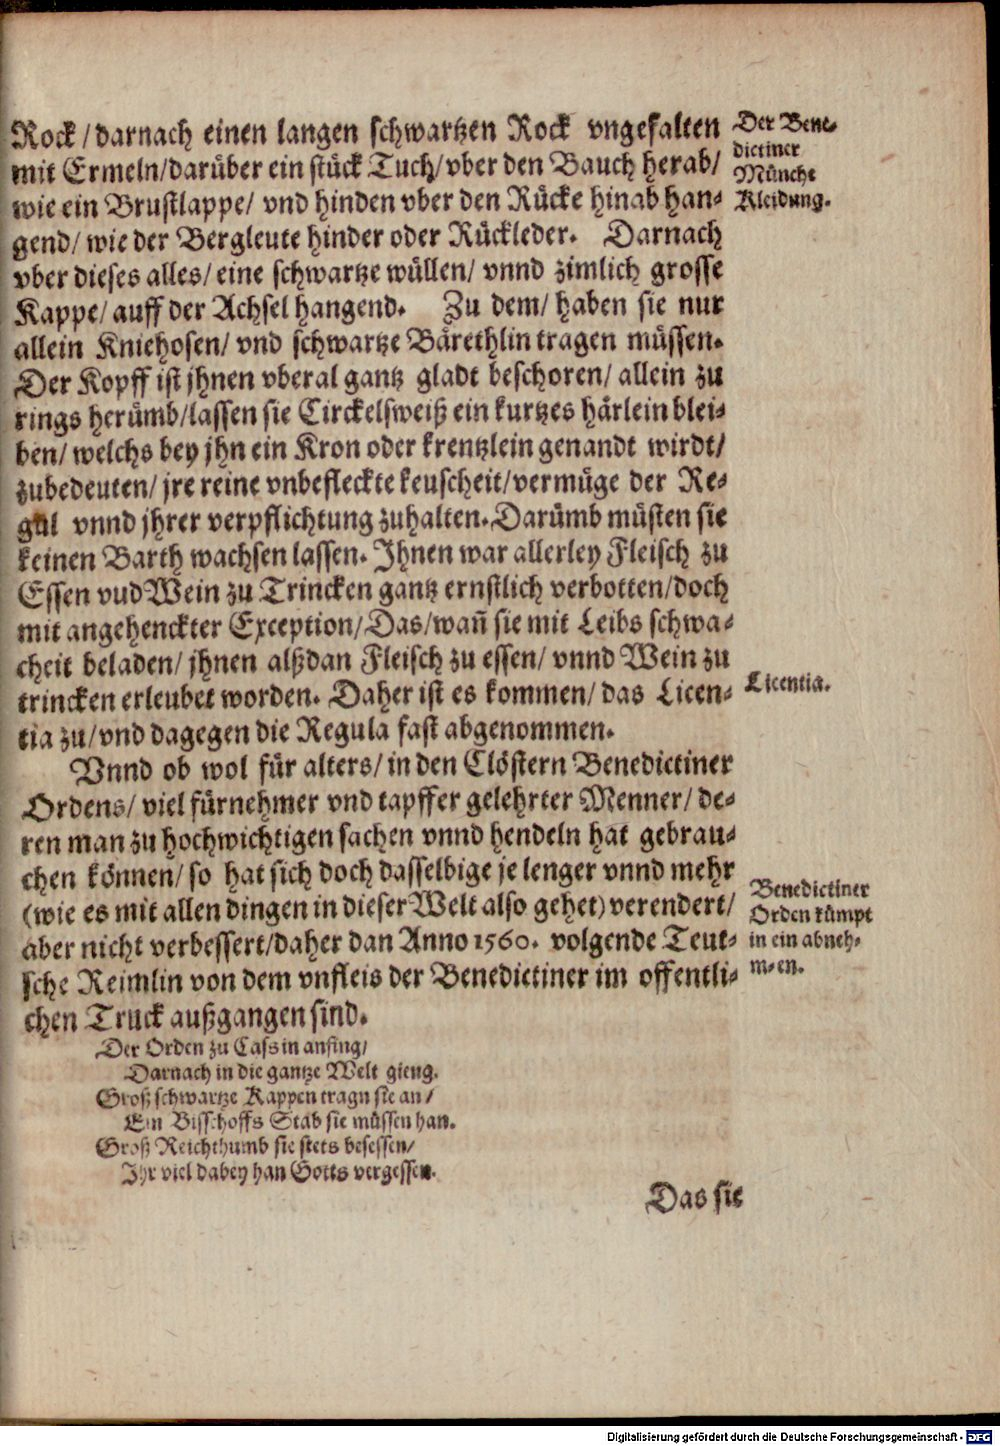 Rock / darnach einen langen schwartzen Rock vngefalten
mit Ermeln/darüber ein stück Tuch/ vber den Bauch herab/
wie ein Brustlappe/ vnd hinden vber den Rücke hinab han-
gend/ wie der Bergleute hinder oder Rückleder. Darnach
vber dieses alles/ eine schwartze wüllen/ vnnd zimlich grosse
Kappe/ auff der Achsel hangend. Zu dem/ haben sie nur
allein Kniehosen/ vnd schwartze Bärethlin tragen müssen.
Der Kopff ist jhnen vberal gantz gladt beschoren/ allein zu
rings herümb/lassen sie Circkelsweiß ein kurtzes härlein blei-
ben/ welchs bey jhn ein Kron oder krentzlein genandt wirdt/
zubedeuten/ jre reine vnbefleckte keuscheit/vermüge der Re-
gul vnnd jhrer verpflichtung zuhalten. Darümb müsten sie
keinen Barth wachsen lassen. Ihnen war allerley Fleisch zu
Essen vud Wein zu Trincken gantz ernstlich verbotten/doch
mit angehenckter Exception/Das/wañ sie mit Leibs schwa-
cheit beladen/ jhnen alßdan Fleisch zu essen/ vnnd Wein zu
trincken erleubet worden. Daher ist es kommen/ das Licen-
tia zu/vnd dagegen die Regula fast abgenommen.
Vnnd ob wol für alters/ in den Clöstern Benedictiner
Ordens/ viel fürnehmer vnd tapffer gelehrter Menner/ de-
ren man zu hochwichtigen sachen vnnd hendeln hat gebrau-
chen können/ so hat sich doch dasselbige je lenger vnnd mehr
(wie es mit allen dingen in dieser Welt also gehet) verendert/
aber nicht verbessert/daher dan Anno 1560. volgende Teut-
sche Reimlin von dem vnfleis der Benedictiner im offentli-
chen Truck außgangen sind.
Der Orden zu Cassin anfing/
Darnach in die gantze Welt gieng.
Groß schwartze Kappen tragn sie an/
Ein Bisschoffs Stab sie müssen han.
Groß Reichthumb sie stets besessen/
Ihr viel dabey han Gotts vergessen.
Das sie
Der Bene-
dictiner
Münche
Kleidung.
Licentia.
Benedictiner
Orden kümpt
in ein abneh-
men.
Digitalisierung gefördert durch die Deutsche Forschungsgemeinschaft - DFG